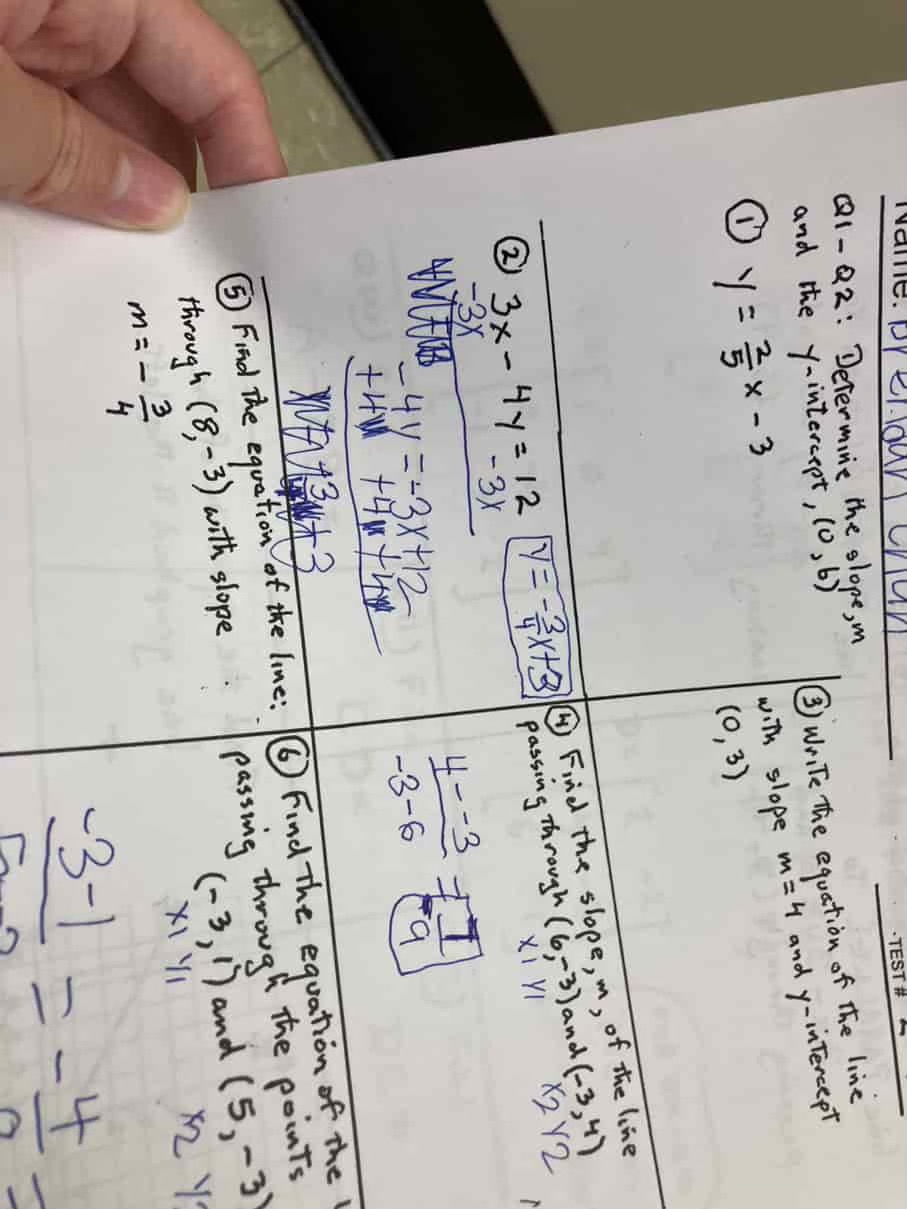 Name:
TEST #
Q1-Q2: Determine the slope, m
and the y-intercept, (0, b)
① y = 2/5 x - 3
③ Write the equation of the line
with slope m = 4 and y-intercept
(0, 3)
② 3x - 4y = 12
-3x -3x
y = -3/4 x + 3
-4y = -3x + 12
④ Find the slope, m, of the line
passing through (6, -3) and (-3, 4)
x1 y1 x2 y2
4 - -3
-3 - 6
-9
⑤ Find the equation of the line:
through (8, -3) with slope
m = - 3/4
⑥ Find the equation of the
passing through the points
(-3, 1) and (5, -3)
x1 y1 x2
-3 - 1 = - 4